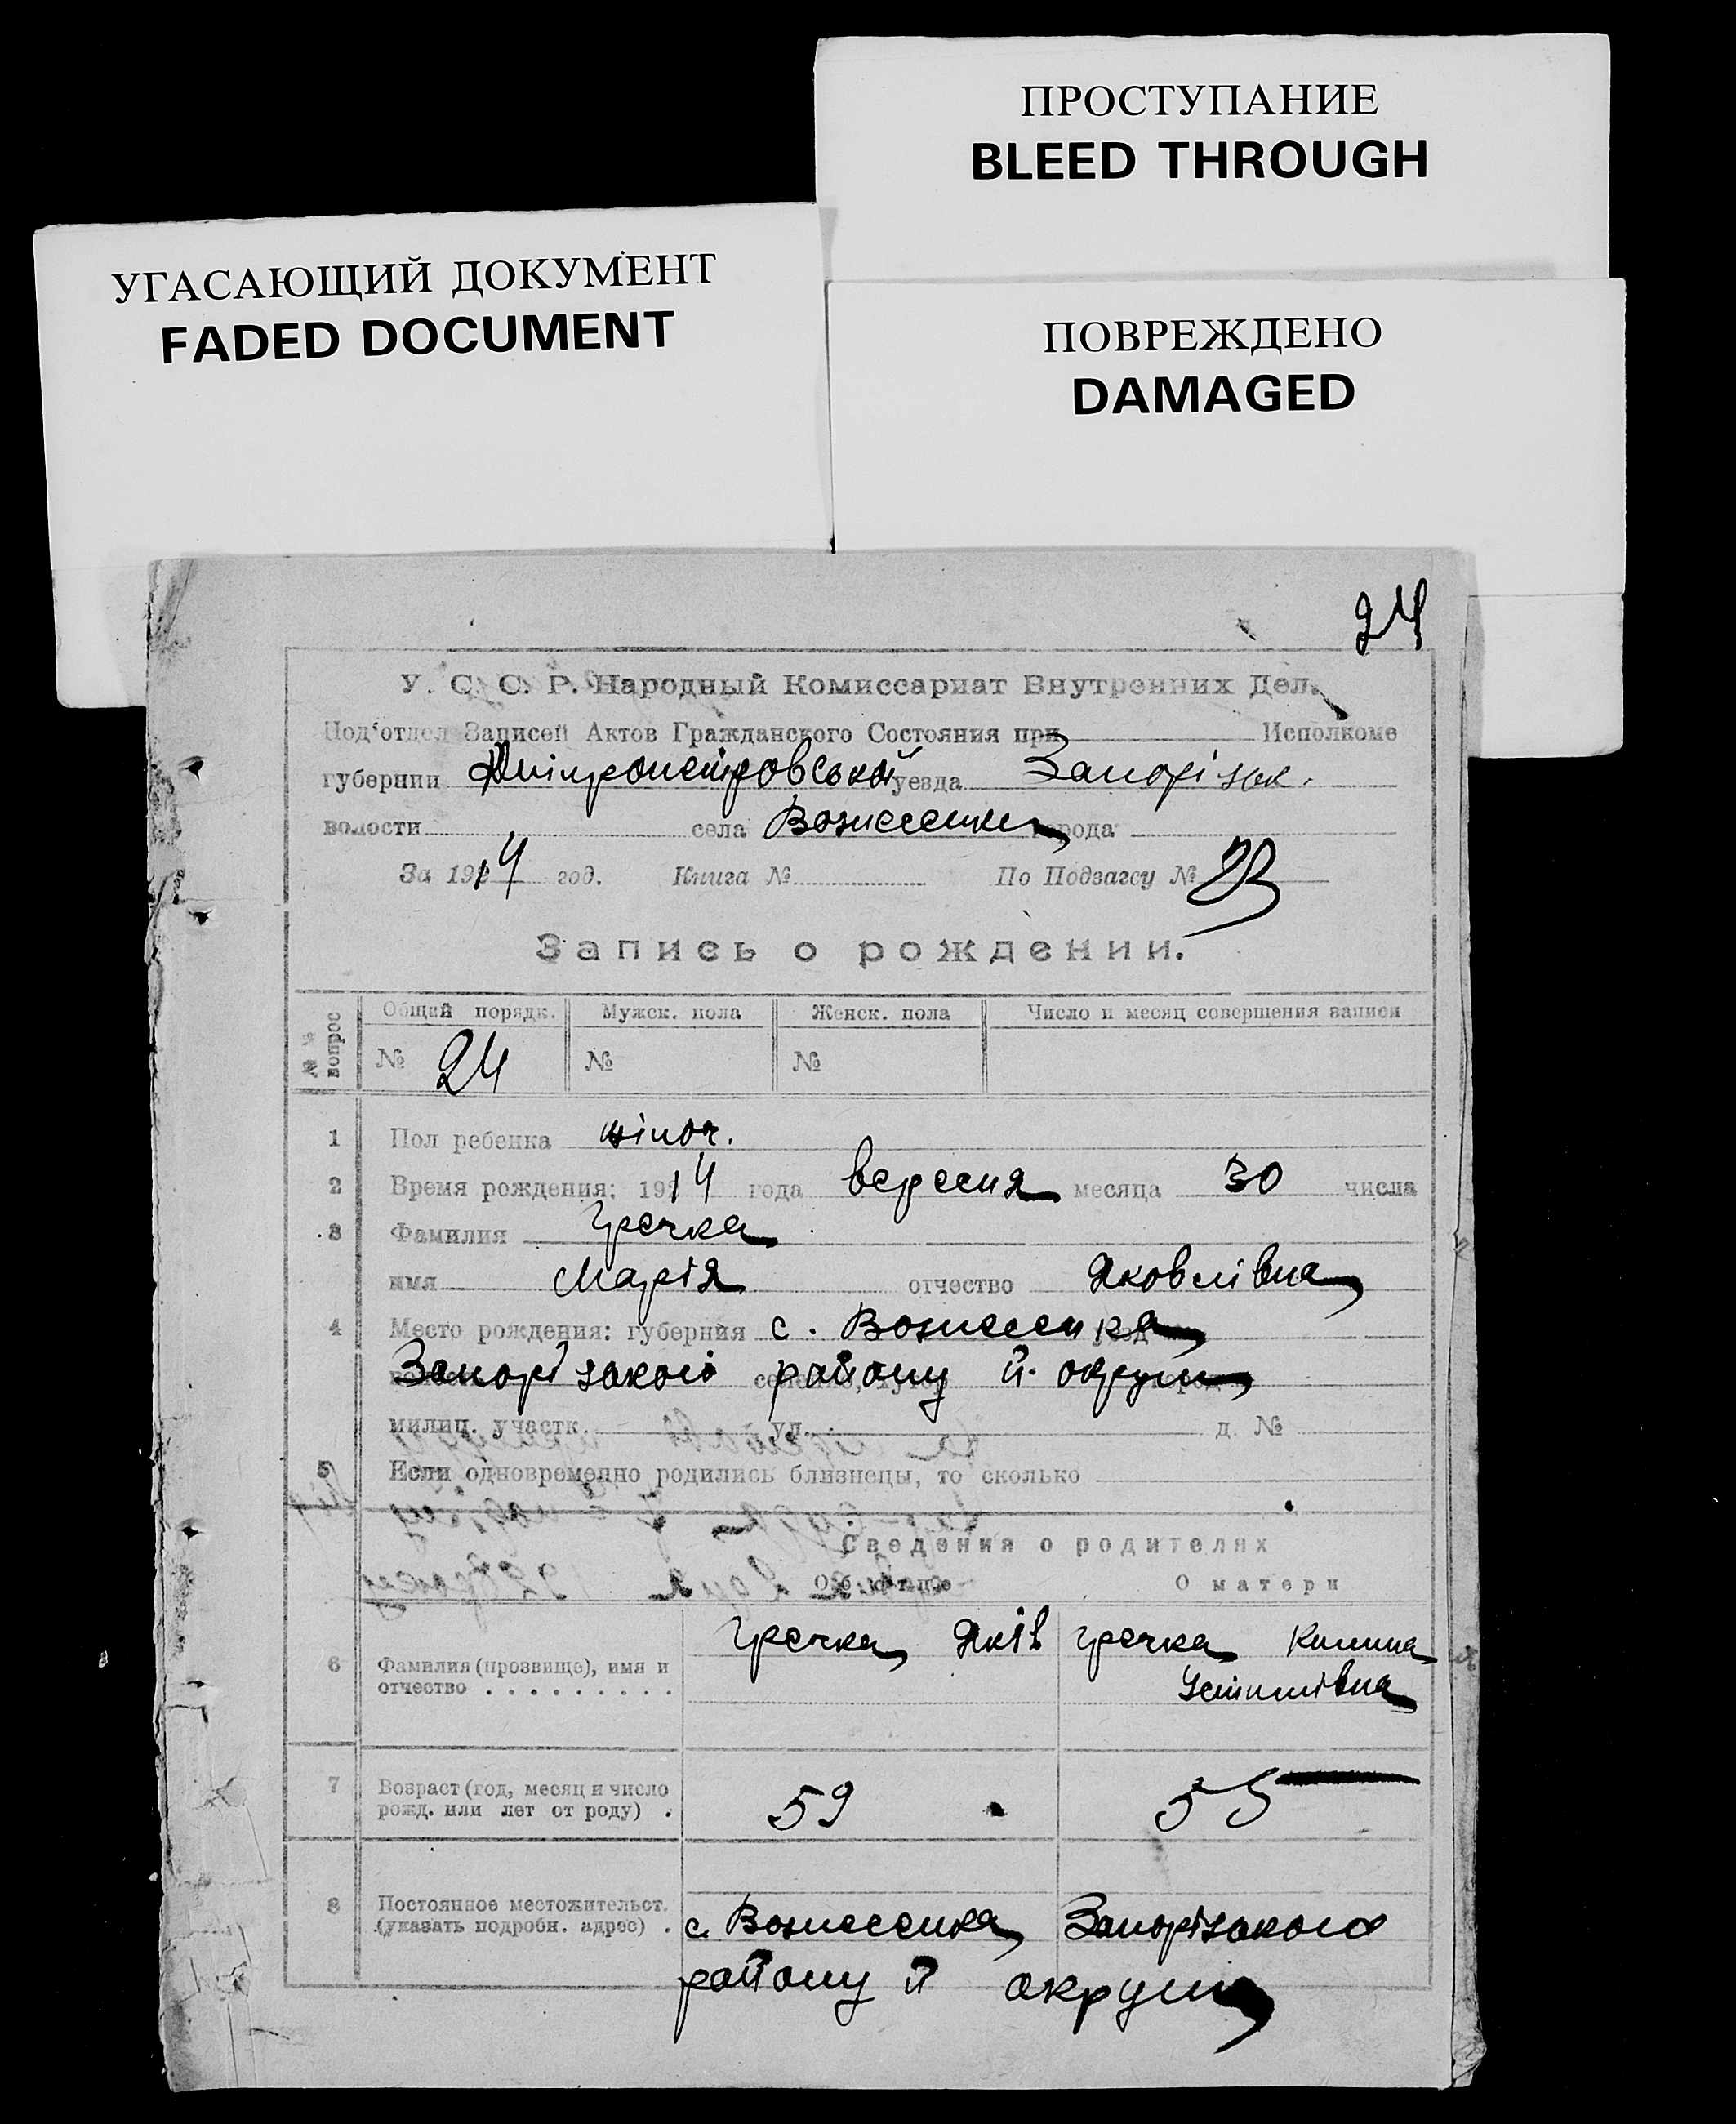 ПРОСТУПАНИЕ
BLEED THROUGH
УГАСАЮЩИЙ ДОКУМЕНТ
FADED DOCUMENT
ПОВРЕЖДЕНО
DAMAGED
24
У. С. С. Р. Народный Комиссариат Внутренних Дел.
Под'отдел Записей Актов Гражданского Состояния при Исполкоме
губернии Дніпропетровської уезда Запорізьк.
волости села Вознесенки города
За 1914 год. Книга № По Подзагсу № 23
Запись о рождении.
№№ вопрос Общий порядк. Мужск. пола Женск. пола Число и месяц совершения записи
№ 24 № №
1 Пол ребенка жіноч.
2 Время рождения: 1914 года вересня месяца 30 числа
3 Фамилия Гречка
имя Марія отчество Яковлівна
4 Место рождения: губерния с. Вознесенка
Запорізького району й округи
милиц. участк. ул. д. №
5 Если одновременно родились близнецы, то сколько
Сведения о родителях
Об отце О матери
6 Фамилия (прозвище), имя и отчество Гречка Яків Гречка Килина
Устимівна
7 Возраст (год, месяц и число рожд. или лет от роду) . 59 55
8 Постоянное местожительст. (указать подробн. адрес) . с. Вознесенка Запорізького
району й округи